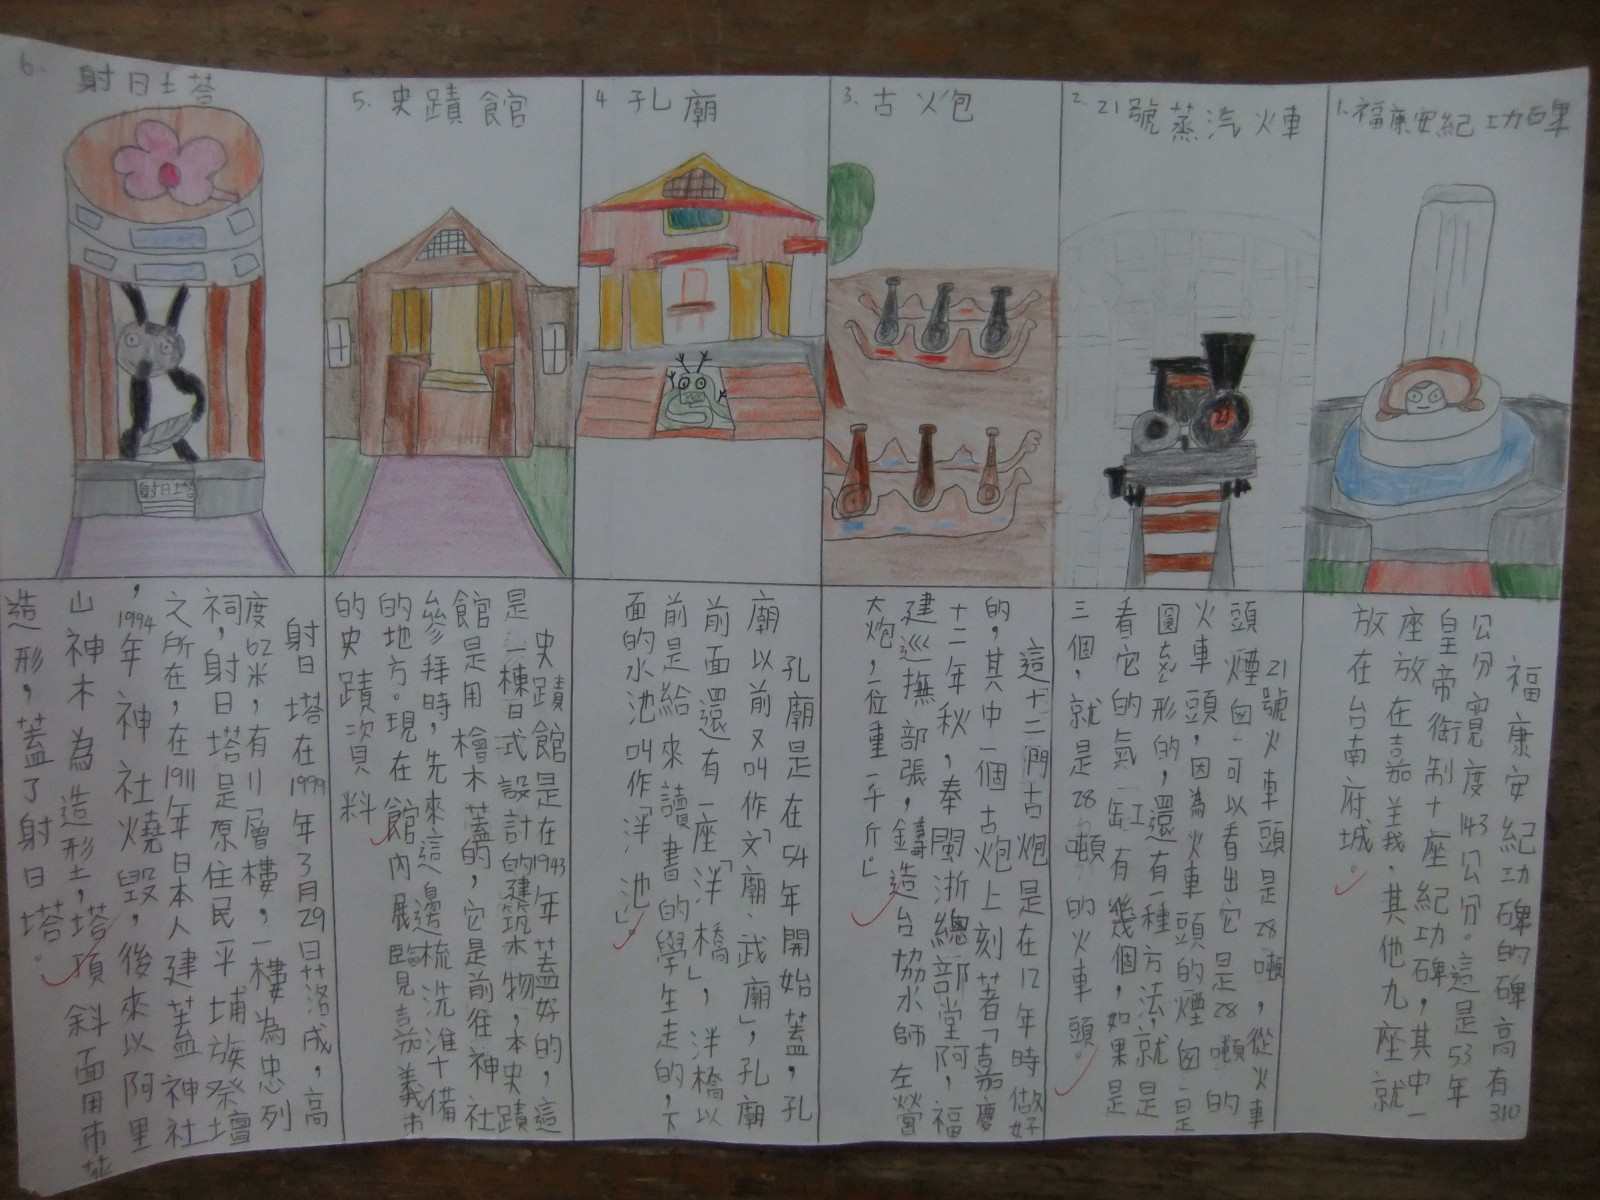 1.福康安紀功碑
福康安紀功碑的碑高有310
公分寬度143公分。這是53年
皇帝銜制十座紀功碑,其中一
座放在嘉義.其他九座就
放在台南府城。
2.21號蒸汽火車
21號火車頭是28噸,從火車
頭煙囪可以看出它是28噸的
火車頭,因為火車頭的煙囪是
圓形的,還有一種方法,就是
看它的氣缸有幾個,如果是
三個,就是28噸的火車頭。
3.古火炮
這十二門古炮是在12年時做好
的,其中一個古炮上刻著「嘉慶
十二年秋,奉閩浙總部堂阿,福
建巡撫部張,鑄造台協水師左營
大炮,一位重一千斤」
4孔廟
孔廟是在54年開始蓋,孔
廟以前又叫作「文廟、武廟」,孔廟
前面還有一座「泮橋」,泮橋以
前是給來讀書的學生走的,下
面的水池叫作「泮池」。
5.史蹟館
史蹟館是在1943年蓋好的,這
是一棟日式設計的建築物,本史蹟
館是用檜木蓋的,它是前往神社
參拜時,先來這邊梳洗準備
的地方。現在館內展覽嘉義市
的史蹟資料
6.射日塔
射日塔在1999年3月29日落成,高
度62米,有11層樓,一樓為忠列
祠,射日塔是原住民平埔族祭壇
之所在,在1911年日本人建蓋神社
,1994年神社燒毀,後來以阿里
山神木為造形,塔頂斜面用市花
造形,蓋了射日塔。
射日塔
21